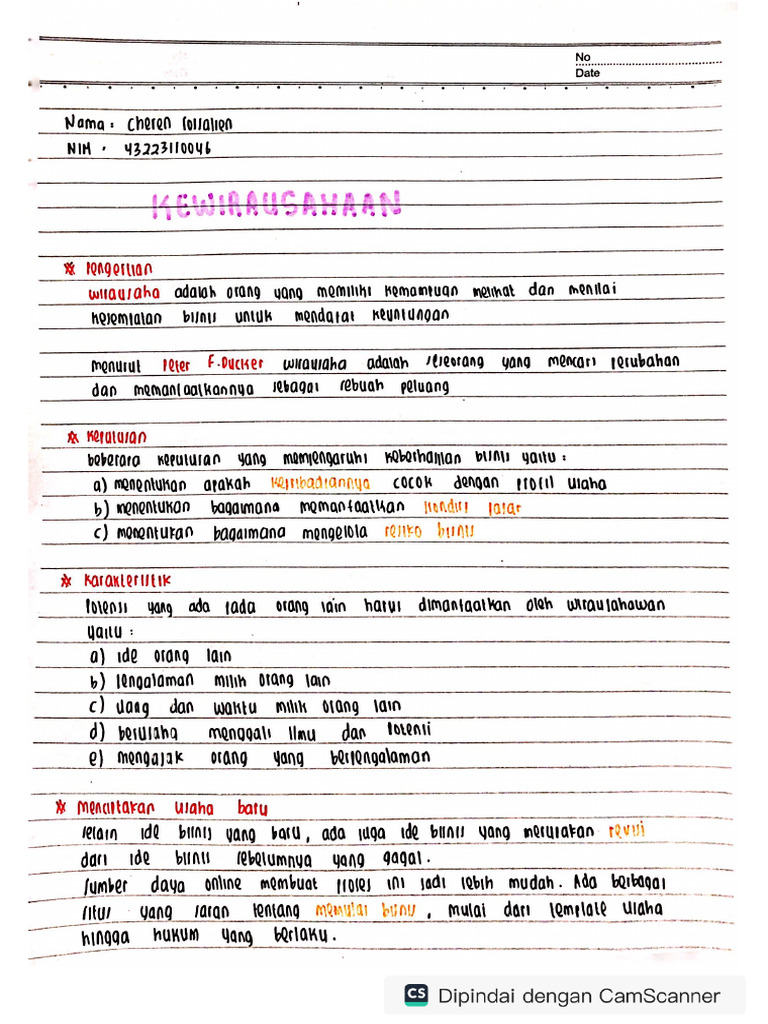 No
Date
Nama : Cheren rosalien
NIM : 43223110046
KEWIRAUSAHAAN
※ Pengertian
wirausaha adalah orang yang memiliki kemampuan melihat dan menilai
kesempatan bisnis untuk mendapat keuntungan
menurut Peter F. Ducker wirausaha adalah seseorang yang mencari perubahan
dan memanfaatkannya sebagai sebuah peluang
※ Keputusan
beberapa keputusan yang mempengaruhi keberhasilan bisnis yaitu :
a) menentukan apakah kepribadiannya cocok dengan profil usaha
b) menentukan bagaimana memanfaatkan kondisi pasar
c) menentukan bagaimana mengelola resiko bisnis
※ Karakteristik
Potensi yang ada pada orang lain harus dimanfaatkan oleh wirausahawan
yaitu :
a) ide orang lain
b) Pengalaman milik orang lain
c) uang dan waktu milik orang lain
d) berusaha menggali ilmu dan Potensi
e) mengajak orang yang berpengalaman
※ Menciptakan usaha baru
selain ide bisnis yang baru, ada juga ide bisnis yang merupakan revisi
dari ide bisnis sebelumnya yang gagal.
sumber daya online membuat proses ini jadi lebih mudah. Ada berbagai
situs yang saran tentang memulai bisnis, mulai dari template usaha
hingga hukum yang berlaku.
CS Dipindai dengan CamScanner